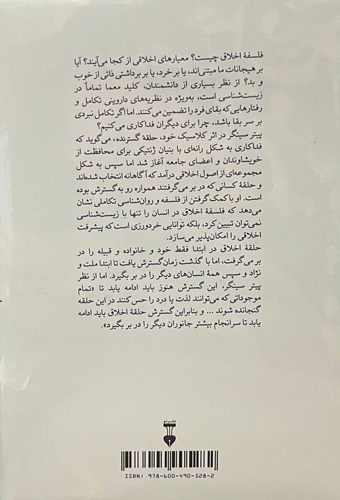 فلسفهٔ اخلاق چیست؟ معیارهای اخلاقی از کجا می‌آیند؟ آیا
بر هیجانات ما مبتنی‌اند، یا بر خرد، یا بر برداشتی ذاتی از خوب
و بد؟ از نظر بسیاری از دانشمندان، کلید معما تماماً در
زیست‌شناسی است، به‌ویژه در نظریه‌های داروینی تکامل و
رفتارهایی که بقای فرد را تضمین می‌کنند. اما اگر تکامل نبردی
بر سر بقا باشد، چرا برای دیگران فداکاری می‌کنیم؟
پیتر سینگر در اثر کلاسیک خود، حلقهٔ گسترنده، می‌گوید که
فداکاری به شکل رانه‌ای با بنیان ژنتیکی برای محافظت از
خویشاوندان و اعضای جامعه آغاز شد اما سپس به شکل
مجموعه‌ای از اصول اخلاقی درآمد که آگاهانه انتخاب شده‌اند
و حلقهٔ کسانی که در بر می‌گرفتند همواره رو به گسترش بوده
است. او با کمک گرفتن از فلسفه و روان‌شناسی تکاملی نشان
می‌دهد که فلسفهٔ اخلاق در انسان را تنها با زیست‌شناسی
نمی‌توان تبیین کرد، بلکه توانایی خردورزی است که پیشرفت
اخلاقی را امکان‌پذیر می‌سازد.
حلقهٔ اخلاق در ابتدا فقط خود و خانواده و قبیله را در
بر می‌گرفت، اما با گذشت زمان گسترش یافت تا ابتدا ملت و
نژاد و سپس همهٔ انسان‌های دیگر را در بر بگیرد. اما از نظر
پیتر سینگر، این گسترش هنوز باید ادامه یابد تا «تمام
موجوداتی که می‌توانند لذت یا درد را حس کنند در این حلقه
گنجانده شوند ... و بنابراین گسترش حلقهٔ اخلاق باید ادامه
یابد تا سرانجام بیشتر جانوران دیگر را در بر بگیرد».
ISBN: 978-600-490-328-2